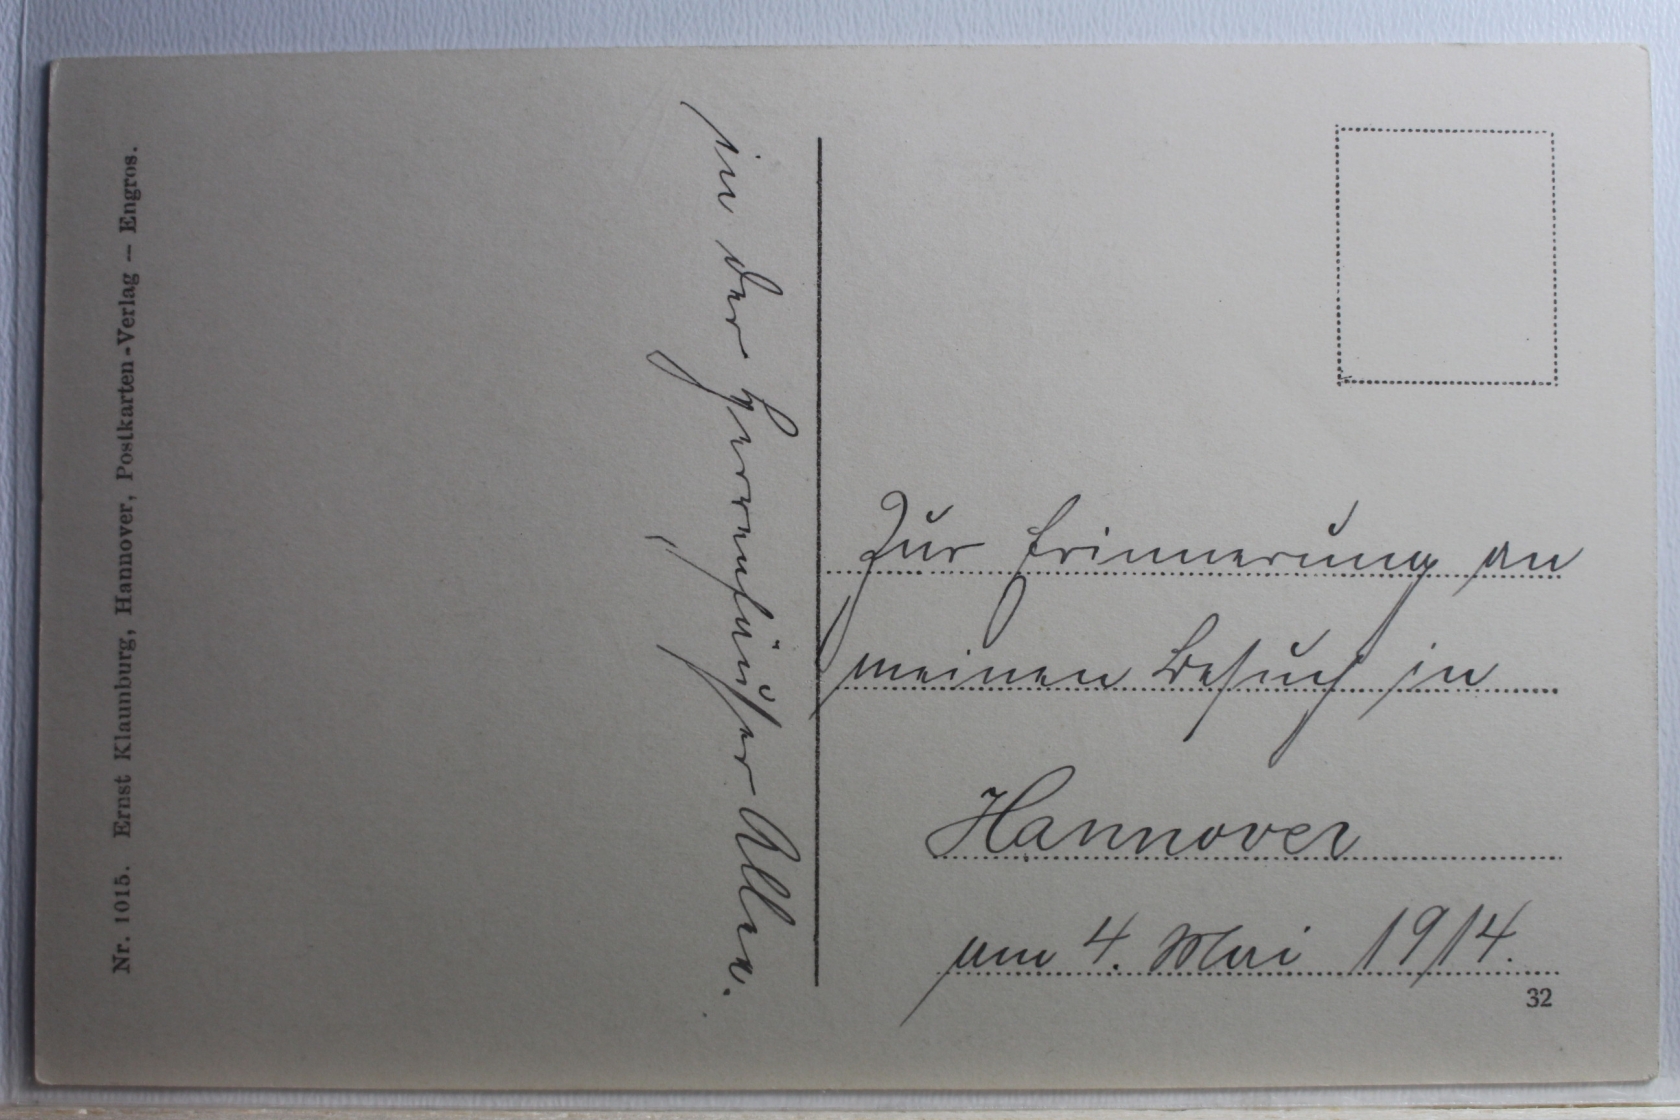 Nr. 1015. Ernst Klaunburg, Hannover, Postkarten-Verlag — Engros.
in der Herrenhäuser Allee.
Zur Erinnerung an
meinen Besuch in
Hannover
am 4. Mai 1914.
32